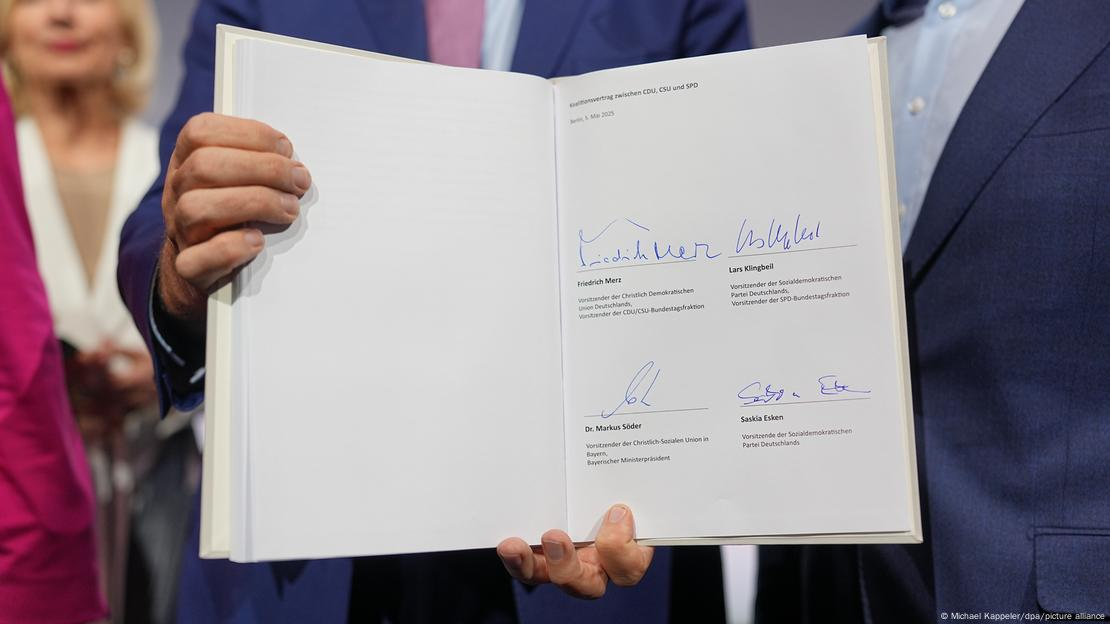 Koalitionsvertrag zwischen CDU, CSU und SPD
Berlin, 5. Mai 2025
Friedrich Merz
Friedrich Merz
Vorsitzender der Christlich Demokratischen
Union Deutschlands,
Vorsitzender der CDU/CSU-Bundestagsfraktion
Lars Klingbeil
Vorsitzender der Sozialdemokratischen
Partei Deutschlands,
Vorsitzender der SPD-Bundestagsfraktion
Dr. Markus Söder
Vorsitzender der Christlich-Sozialen Union in
Bayern,
Bayerischer Ministerpräsident
Saskia Esken
Vorsitzende der Sozialdemokratischen
Partei Deutschlands
© Michael Kappeler/dpa/picture alliance